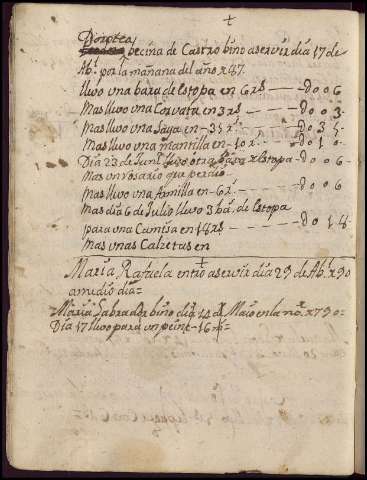 +
Dorotea
vecina de Castro bino a servir dia 17 de
Ab.l por la mañana del año x87.
llevo una bara de estopa en 6 rs — 006
Mas llevo una Corvata en 3 rs — 003
Mas llevo una Saya en — 35 r.s — 035
Mas llevo una mantilla en — 10 r. — 010
Dia 23 de Junl llevo otra bara x estopa — 006
Mas un rosario que perdio
mas llevo una familla en — 6 r. — 006
mas dia 6 de Julio llevo 3 ba.s de Estopa
para una Camisa en 18 rs — 018
Mas unas Calzetas en
+
Maria Rafaela entro a servir dia 29 de Ab.l x90
a medio dia =
Maria Labrador bino dia 14 de Maio en la no.e x790 =
Dia 17 llevo para un peine — 16 m.s =